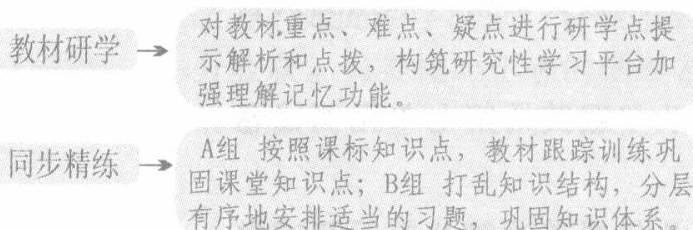 教材研学 → 对教材重点、难点、疑点进行研学点提
示解析和点拨，构筑研究性学习平台加
强理解记忆功能。
同步精练 → A组 按照课标知识点，教材跟踪训练巩
固课堂知识点；B组 打乱知识结构，分层
有序地安排适当的习题，巩固知识体系。